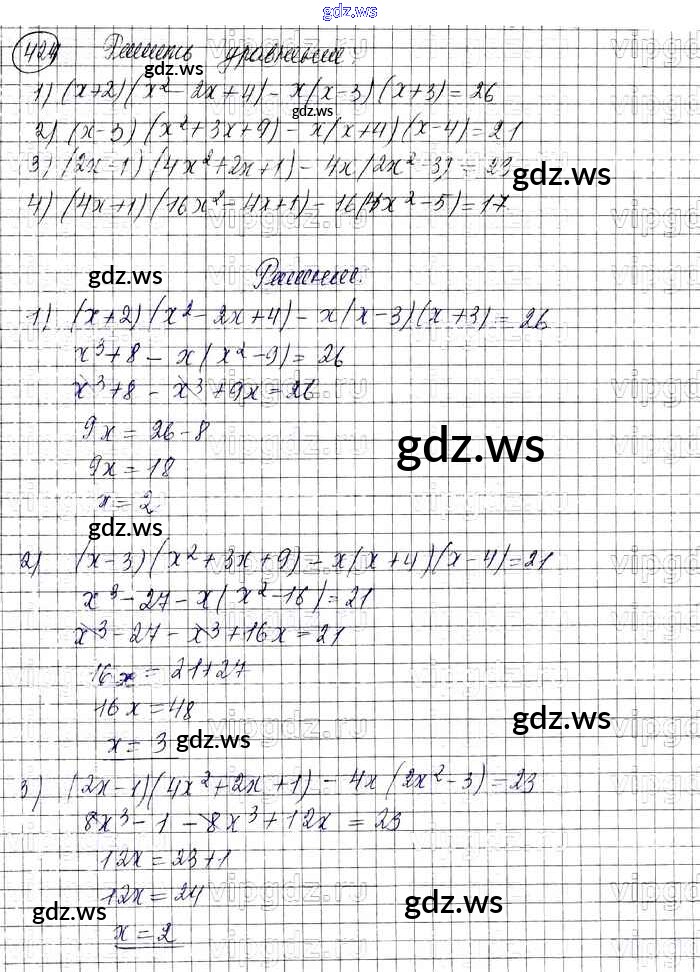 gdz.ws
424 Решить уравнения:
gdz.ws
1) (x+2)(x²-2x+4)-x(x-3)(x+3)=26
gdz.ws
2) (x-3)(x²+3x+9)-x(x+4)(x-4)=21
3) (2x-1)(4x²+2x+1)-4x(2x²-3)=23
gdz.ws
4) (4x+1)(16x²-4x+1)-16(4x²-5)=17
gdz.ws
Решение:
1) (x+2)(x²-2x+4)-x(x-3)(x+3)=26
x³+8-x(x²-9)=26
x³+8-x³+9x=26
9x=26-8
gdz.ws
9x=18
x=2
gdz.ws
2) (x-3)(x²+3x+9)-x(x+4)(x-4)=21
x³-27-x(x²-16)=21
x³-27-x³+16x=21
16x=21+27
16x=48
gdz.ws
x=3
gdz.ws
3) (2x-1)(4x²+2x+1)-4x(2x²-3)=23
8x³-1-8x³+12x=23
12x=23+1
12x=24
gdz.ws
gdz.ws
x=2